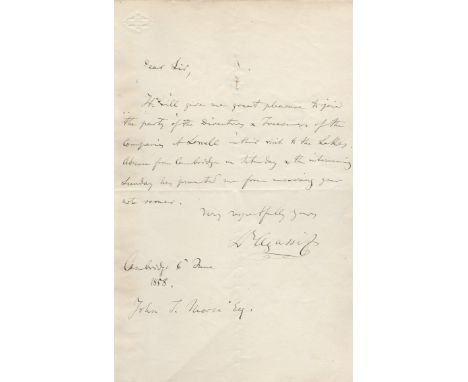 Dear Sir,
It will give me great pleasure to join
the party of the Directors & Treasurers of the
Companies at Lowell in their visit to the Lakes.
Absence from Cambridge on Saturday & the intervening
Sunday has prevented me from receiving your
note sooner.
Very respectfully yours
Ls Agassiz
Cambridge 6 June
1858.
John T. Morse Esq.